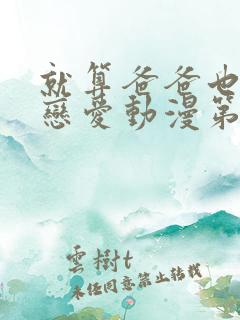 就算爸爸也
戀愛動漫第
雲樹t
未经同意禁止转载